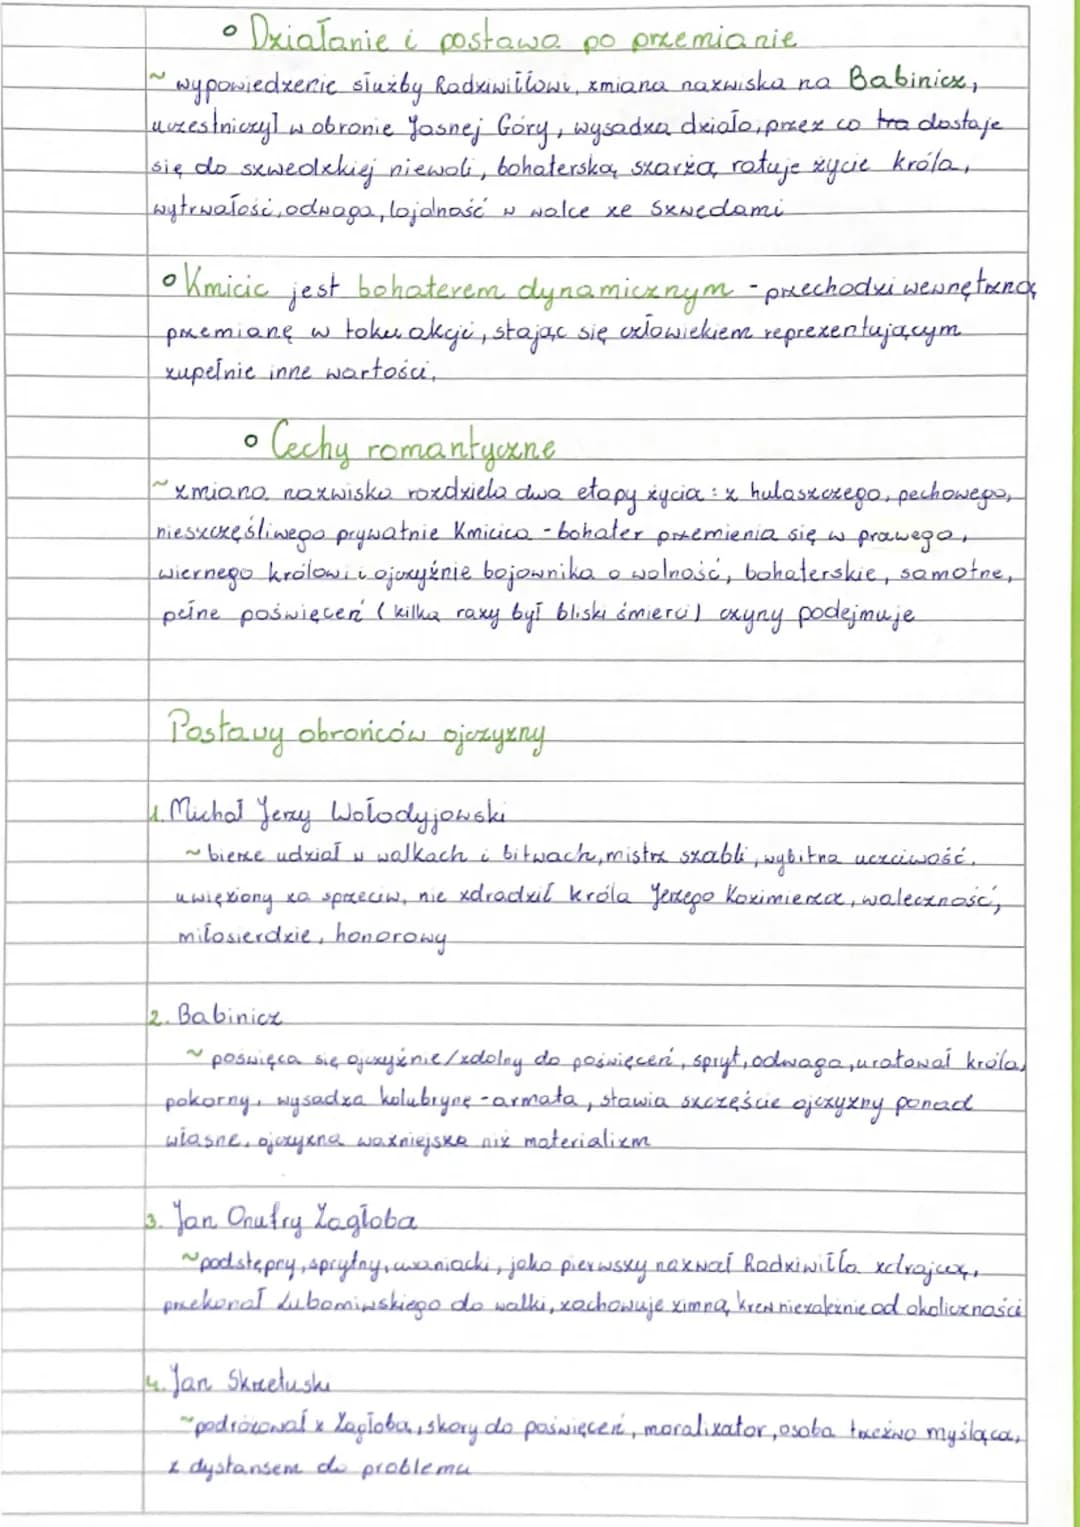 ° Działanie i postawa po przemianie
~ wypowiedzenie służby Radziwiłłowi, zmiana nazwiska na Babinicz,
uczestniczył w obronie Jasnej Góry, wysadza działo, przez co dostaje
się do szwedzkiej niewoli, bohaterską szarżą ratuje życie króla,
wytrwałość, odwaga, lojalność w walce ze Szwedami
° Kmicic jest bohaterem dynamicznym - przechodzi wewnętrzną
przemianę w toku akcji, stając się człowiekiem reprezentującym
zupełnie inne wartości,
° Cechy romantyczne
~ zmiana nazwiska rozdziela dwa etapy życia: z hulaszczego, pechowego,
nieszczęśliwego prywatnie Kmicica - bohater przemienia się w prawego,
wiernego królowi i ojczyźnie bojownika o wolność, bohaterskie, samotne,
pełne poświęceń (kilka razy był bliski śmierci) czyny podejmuje
Postawy obrońców ojczyzny
1. Michał Jerzy Wołodyjowski
~ bierze udział w walkach i bitwach, mistrz szabli, wybitna uczciwość,
uwięziony za sprzeciw, nie zdradził króla Jerzego Kazimierza, waleczność,
miłosierdzie, honorowy
2. Babinicz
~ poświęca się ojczyźnie/zdolny do poświęceń, spryt, odwaga, uratował króla,
pokorny, wysadza kolubrynę - armata, stawia szczęście ojczyzny ponad
własne, ojczyzna ważniejsza niż materializm
3. Jan Onufry Zagłoba
~ podstępny, sprytny, cwaniacki, jako pierwszy nazwał Radziwiłła zdrajcą,
przekonał Lubomirskiego do walki, zachowuje zimną krew niezależnie od okoliczności
4. Jan Skrzetuski
~ podróżował z Zagłobą, skory do poświęceń, moralizator, osoba trzeźwo myśląca,
z dystansem do problemu